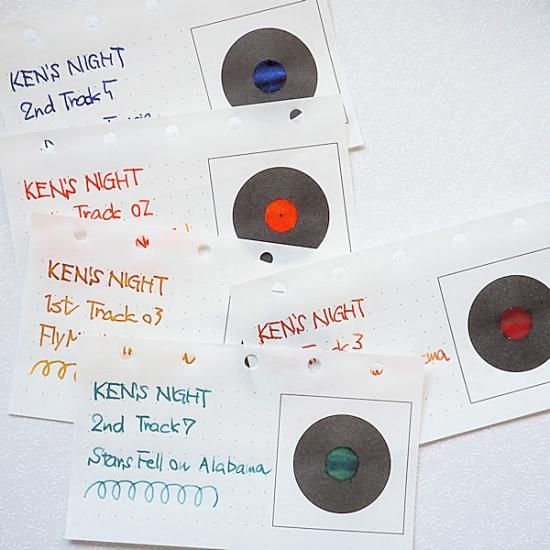 KEN'S NIGHT
2nd Track 5
KEN'S NIGHT
Track 02
KEN'S NIGHT
1st Track 03
Fly M
KEN'S NIGHT
Track 3
ama
KEN'S NIGHT
2nd Track 7
Stars Fell on Alabama